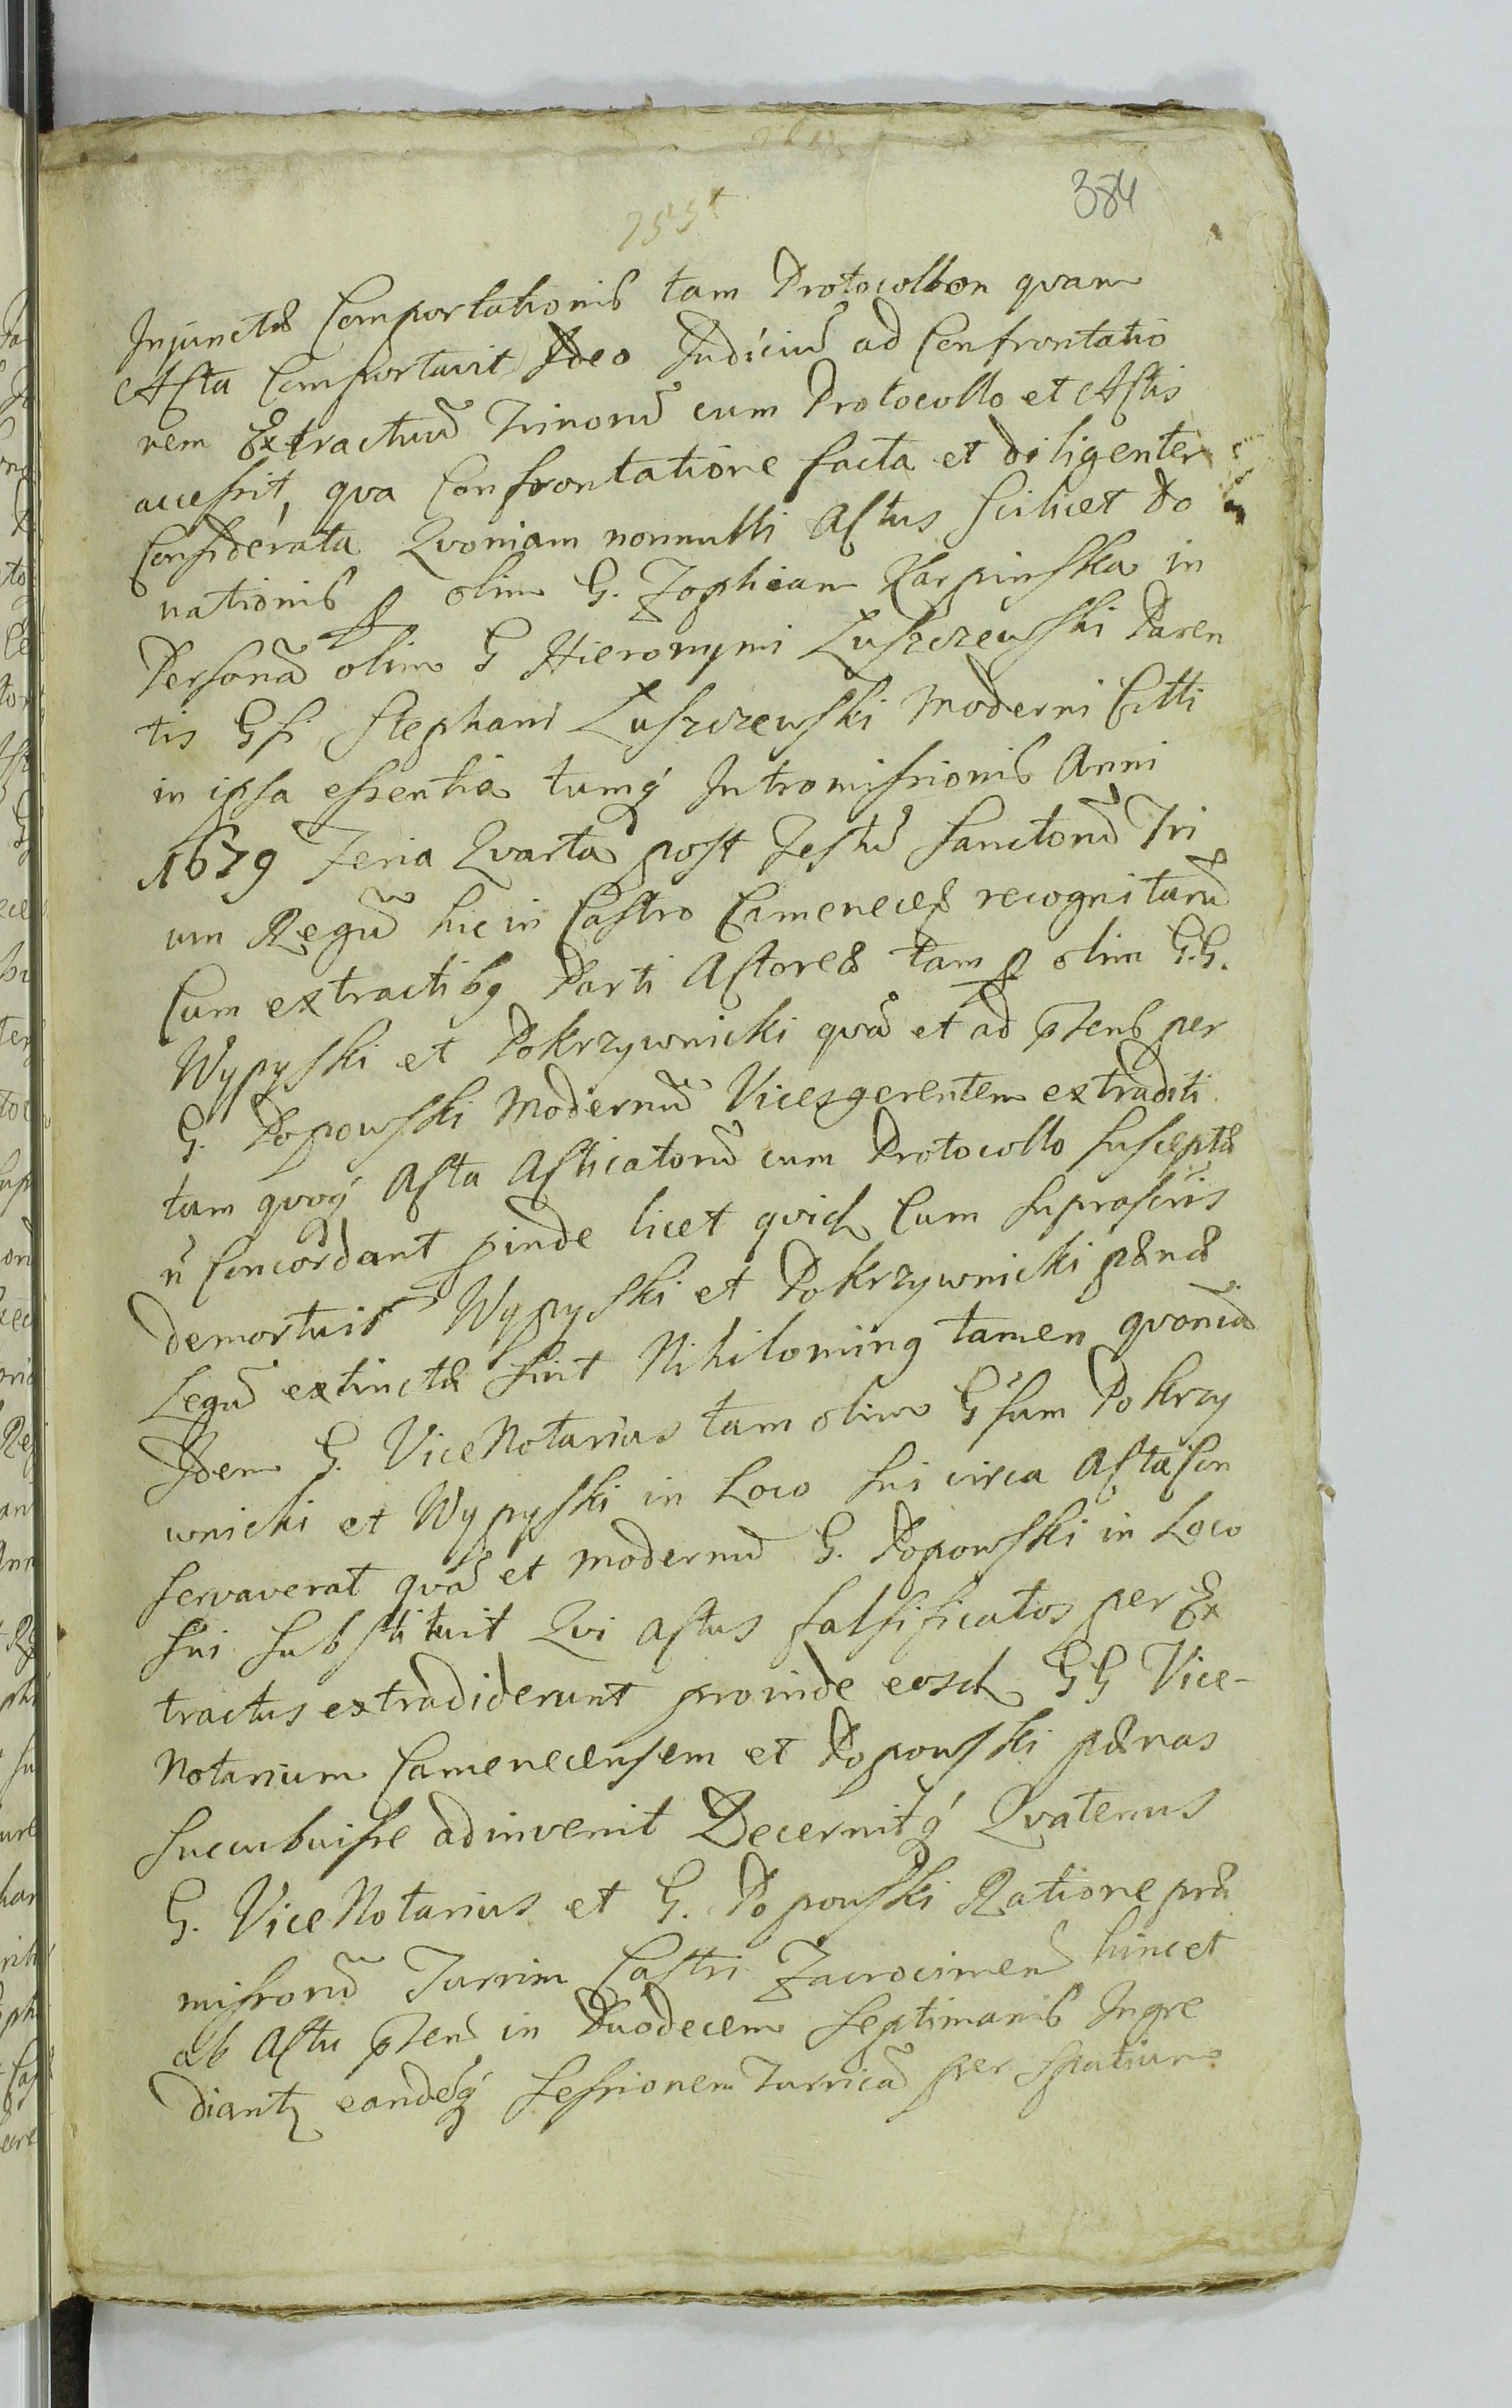 384
Injunctæ Comportationis tam Protocollon quam
Acta Comportavit Ideo Judiciũ ad Confrontatio
nem Extractuũ Trinorũ cum Protocollo et Actis
accessit, qua Confrontatione facta et diligenter
Considerata Quoniam nonnulli Actus scilicet Do
nationis ꝑ olim G. Zophiam Karpinska in
Personã olim G Hieronymi Luszczewski Paren
tis Gsi Stephani Luszczewski Moderni Citti
in ipsa essentia tumq́ Intromissionis Anni
1679 Feria Quarta post Festũ Sanctorũ Tri
um Regũ hic in Castro Camenecen recognitarũ
Cum extractibꝯ Parti Actoreæ tam ꝑ olim G.G.
Wypyski et Pokrzywnicki quã et ad pñs per
G. Popowski Modernũ Vicesgerentem extraditi
tam quoq́ Acta Acticatorũ cum Protocollo suscepta
ñ Concordant ꝓinde licet quid Cum suprascriis
demortuis Wypyski et Pokrzywnicki pænæ
Legũ extinctæ sint Nihilominꝯ tamen quoniã
Idem G. ViceNotarius tam olim Gsum Pokrzy
wnicki et Wypyski in Loco sui circa Acta Con
servaverat quã et modernũ G. Popowski in Loco
sui substituit Qui actus falsificatos per Ex
tractus extradiderunt proinde eosd GG Vice-
Notarium Camenecensem et Popowski pænas
succubuisse adinvenit Decernitq́ Quatenus
G. ViceNotarius et G. Popowski Ratione præ
missorũ Turrim Castri Zacrocimen hinc et
ab Actu pñti in Duodecem Septimanis Ingre
diantꝛ eandẽq́ Sessionem Turricã per spatium